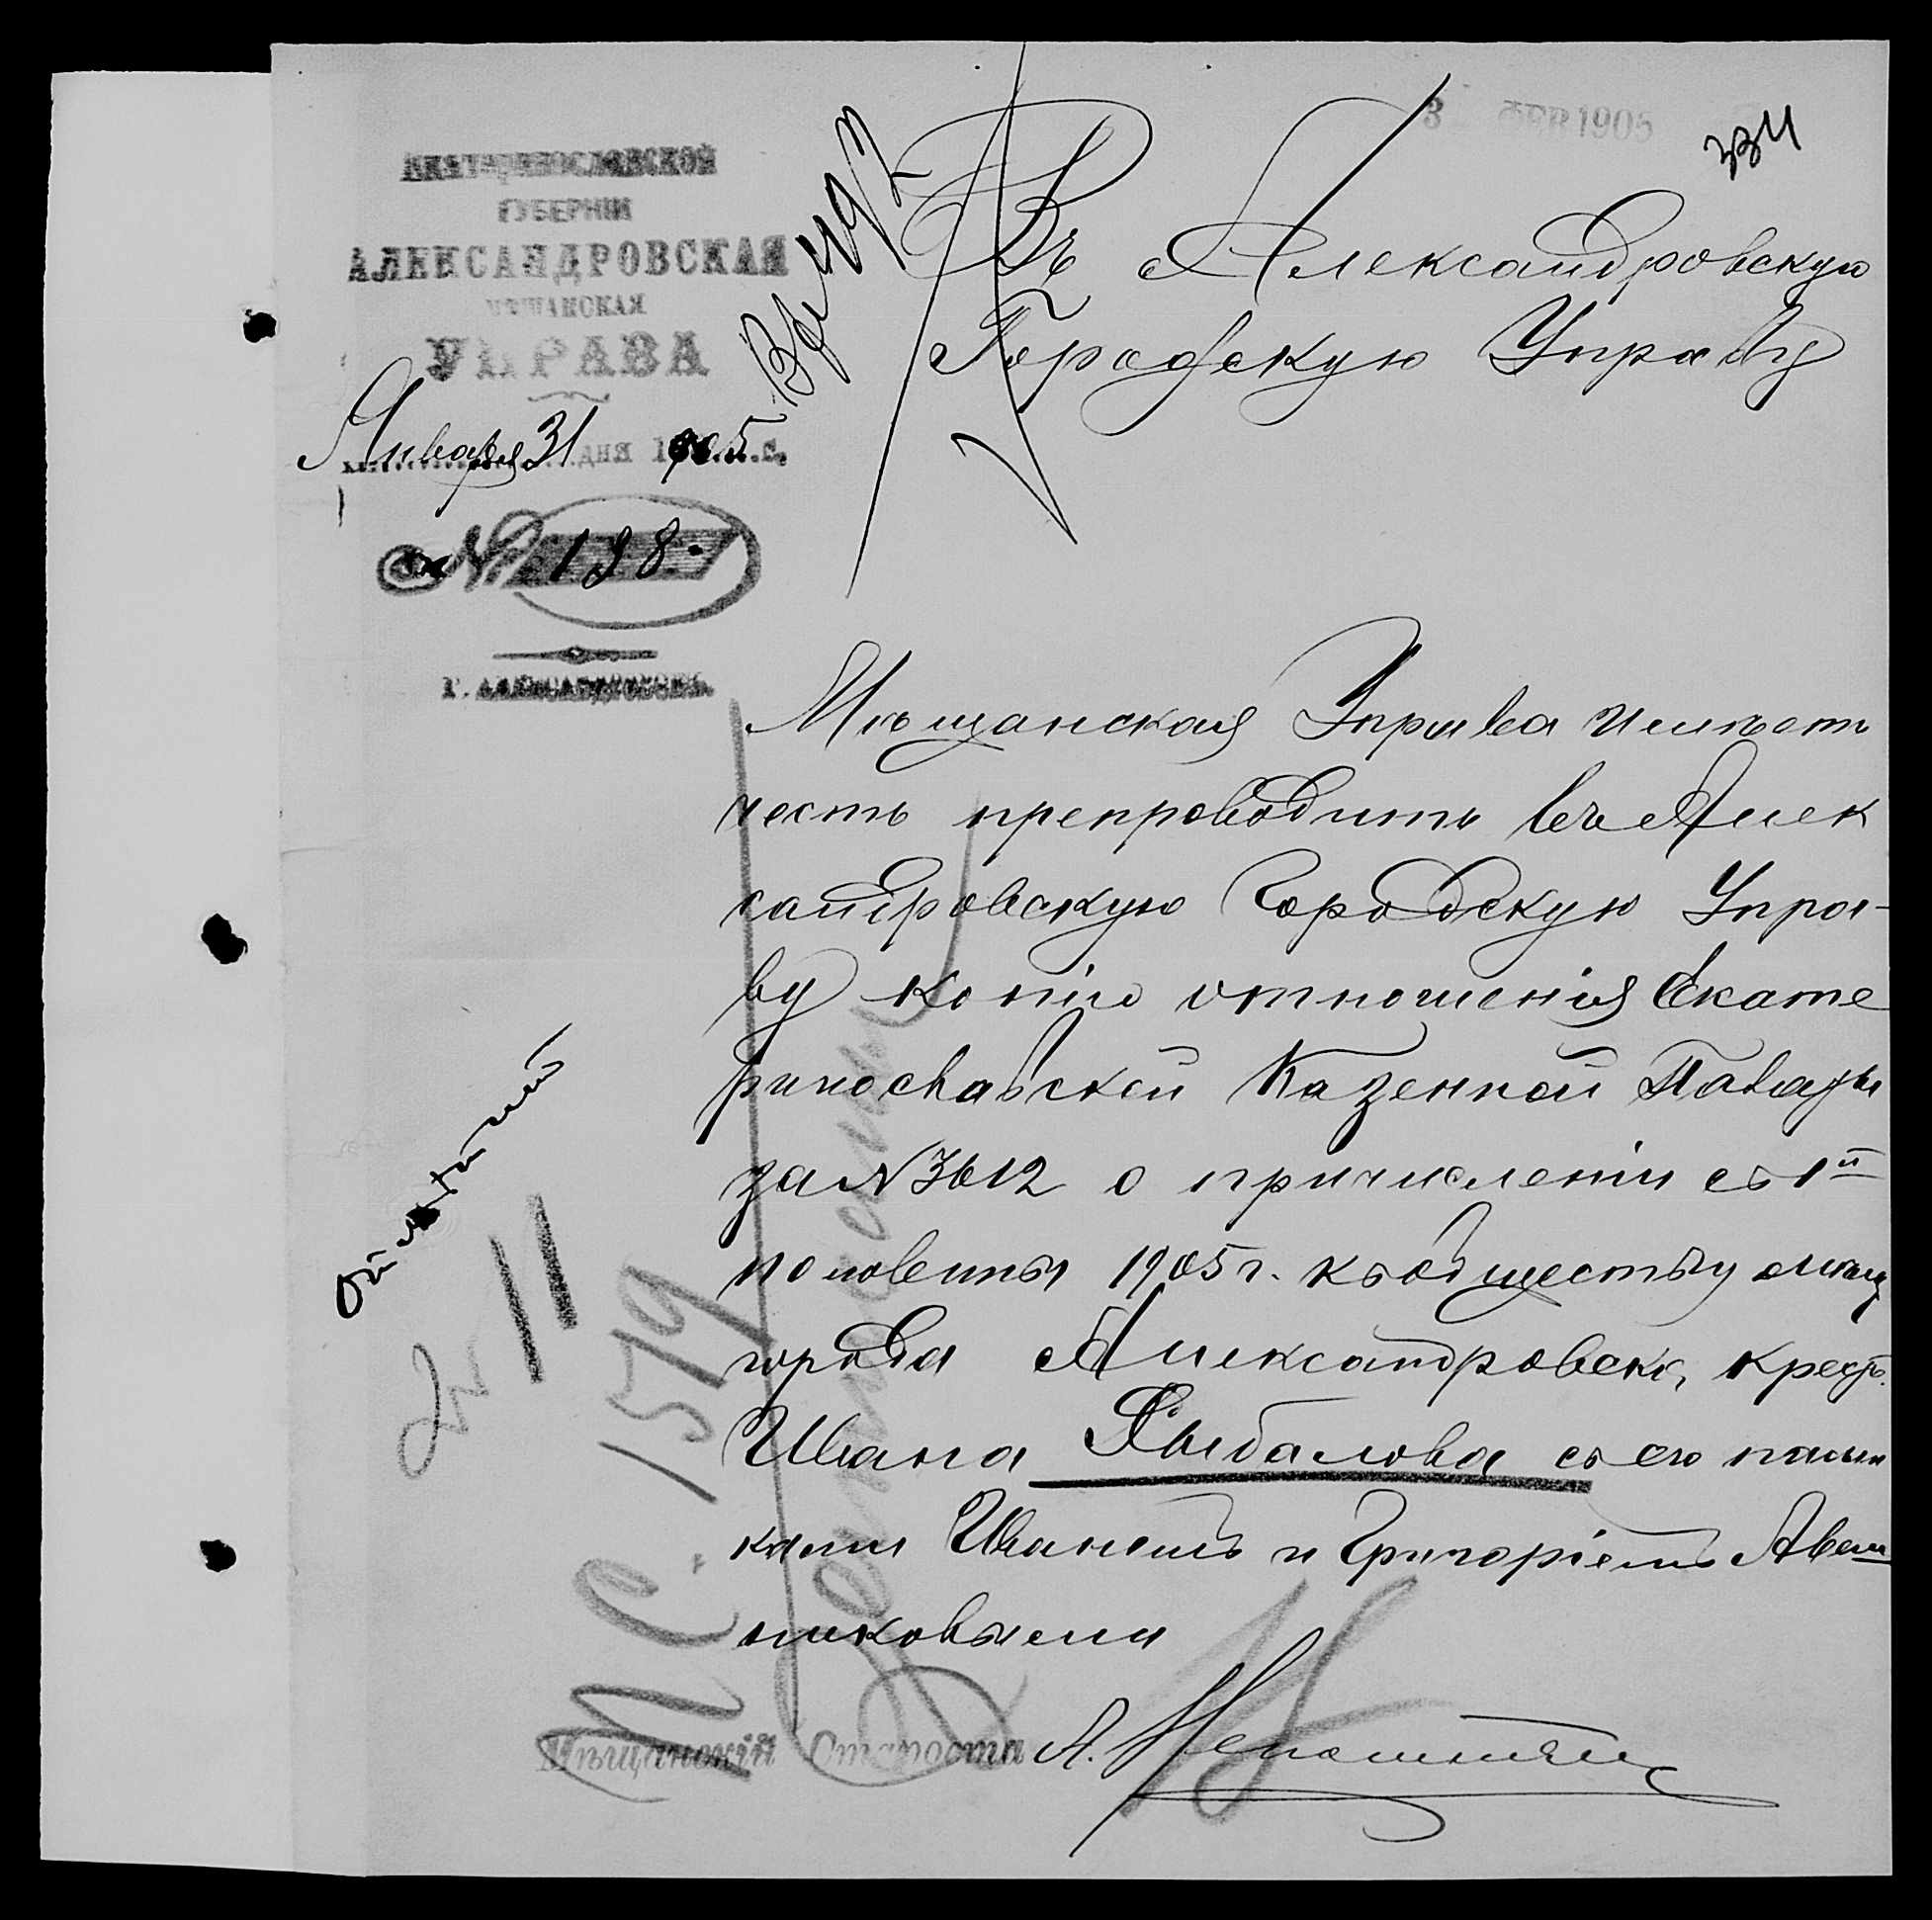 3 ФЕВ 1905
334
ЕКАТЕРИНОСЛАВСКОЙ
ГУБЕРНІИ
АЛЕКСАНДРОВСКАЯ
МѢЩАНСКАЯ
УПРАВА
Января 31 дня 1905 г.
№ 198.
Г. АЛЕКСАНДРОВСКЪ
Въ Александровскую
Городскую Управу
Мѣщанская Управа имѣетъ
честь препроводить въ Алек
сандровскую Городскую Упра-
ву копію отношенія Екате
ринославской Казенной Палаты
за № 3612 о причисленіи съ 1й
половины 1905 г. къ обществу мѣщ
города Александровска, крест.
Ивана Рыбалова съ его пасын
ками Иваномъ и Григоріемъ
никовыми
Мѣщанскій Староста А.
М С. 1519
11